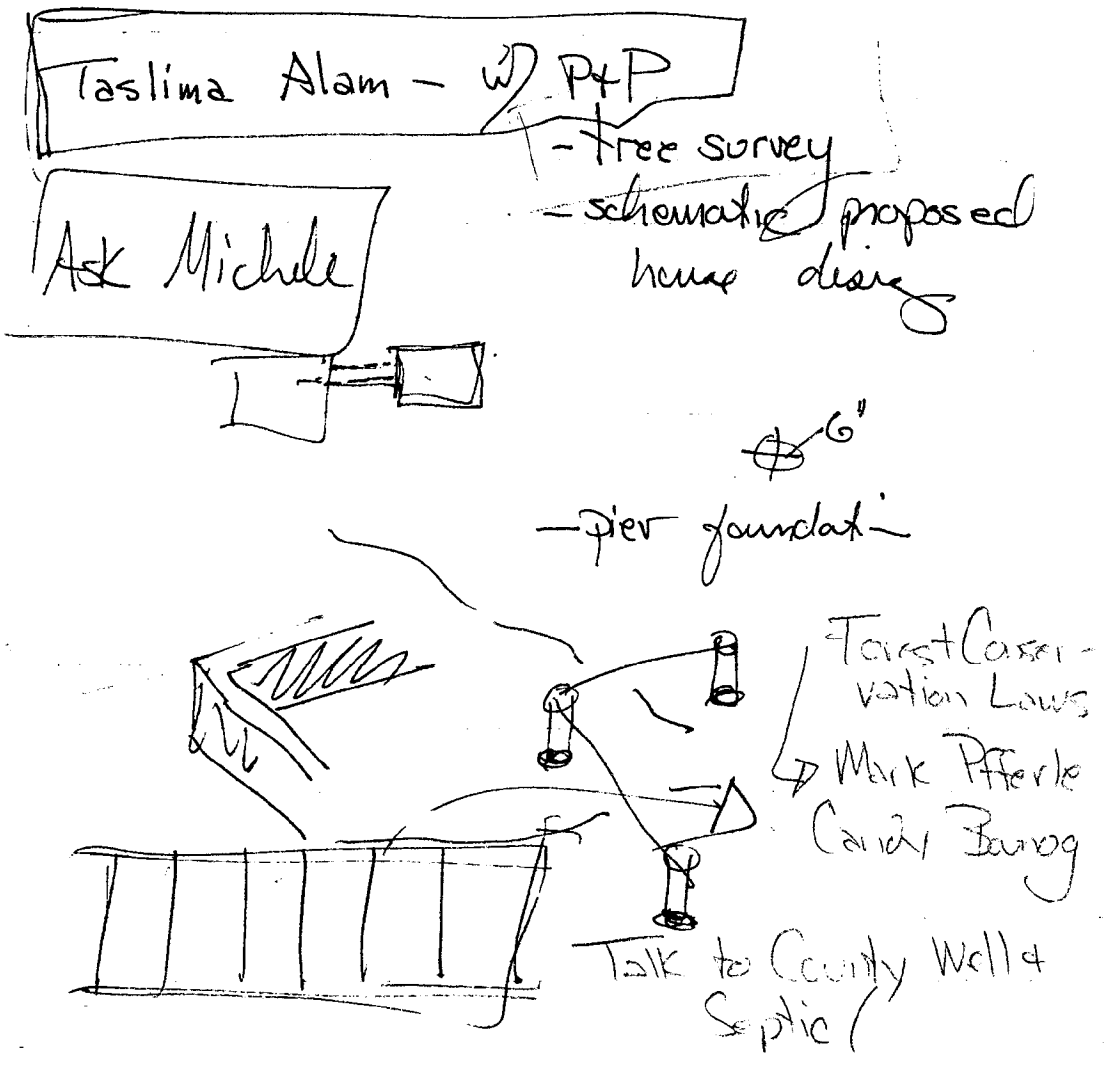 Taslima Alam - w/ P+P
- tree survey
- schematic proposed
house desig
Ask Michele
6"
- pier foundati
Forest Conser-
vation Laws
Mark Pfferle
Candy
Talk to County Well &
Septic